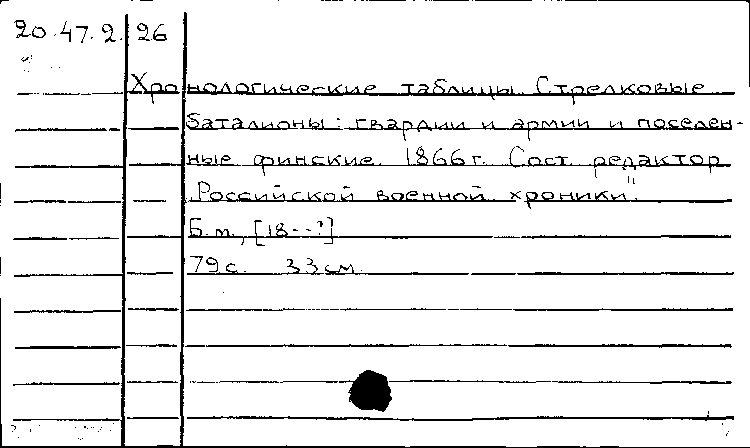 20.47.2.26
Хронологические таблицы. Стрелковые
баталионы: гвардии и армии и поселен-
ные финские. 1866 г. Сост. редактор
„Российской военной хроники".
Б. м., [18--?]
79 с. 33 см.